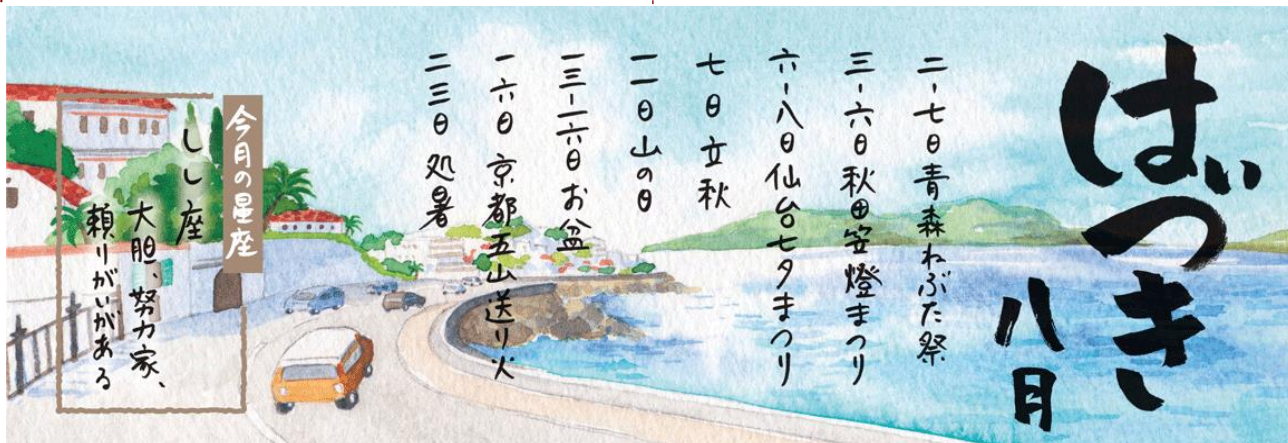 はづき
八月
二-七日青森ねぶた祭
三-六日秋田竿燈まつり
六-八日仙台七夕まつり
七日立秋
一一日山の日
一三-一六日お盆
一六日京都五山送り火
二三日処暑
今月の星座
しし座
大胆、努力家、
頼りがいがある